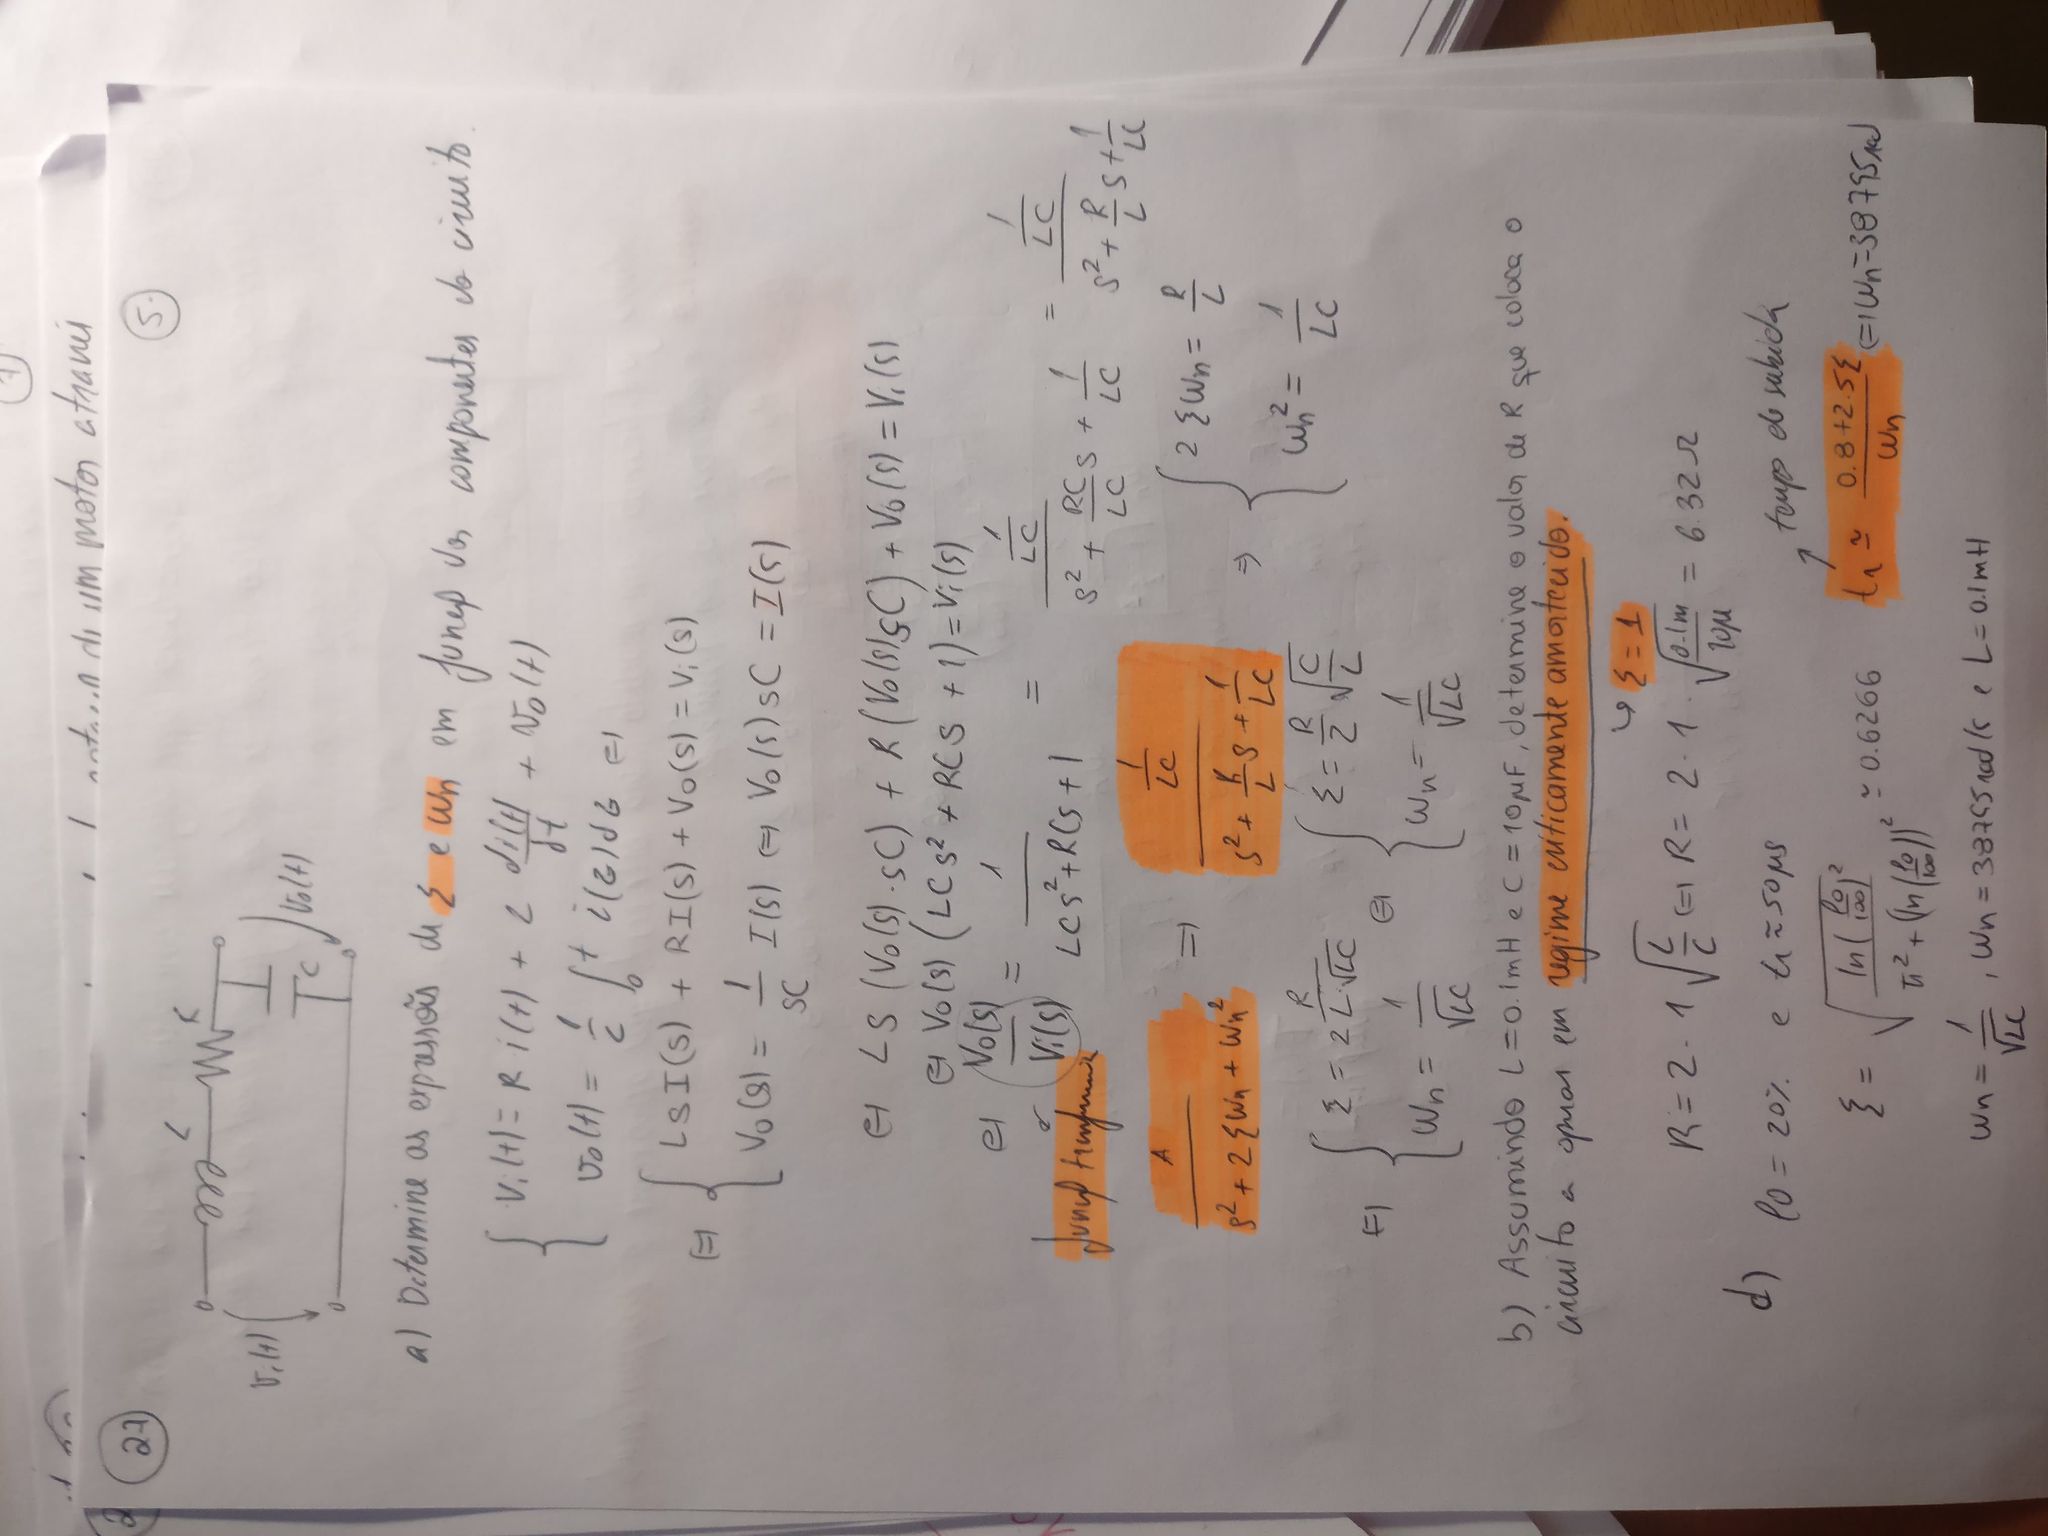 7
de um motor através
27
5.
L
R
Vi(t)
C
Vo(t)
a) Determine as expressões de ξ e ωn em função dos componentes do circuito.
Vi(t) = R i(t) + L di(t)/dt + Vo(t)
vo(t) = 1/C ∫₀ᵗ i(τ)dτ ⇔
⇔ LSI(S) + RI(S) + Vo(S) = Vi(S)
Vo(S) = 1/SC I(S) ⇔ Vo(S)SC = I(S)
⇔ LS (Vo(S)·SC) + R(Vo(S)SC) + Vo(S) = Vi(S)
⇔ Vo(S) (LCS² + RCS + 1) = Vi(S)
⇔ Vo(S)/Vi(S) = 1/(LCS² + RCS + 1) = (1/LC)/(S² + RC/LC S + 1/LC) = (1/LC)/(S² + R/L S + 1/LC)
função transferência
A/(S² + 2ξωn + ωn²) ⇒ (1/LC)/(S² + R/L S + 1/LC) ⇒ 2ξωn = R/L
ωn² = 1/LC
⇔ ξ = 2 R/(L·√LC) ⇔ ξ = R/2 √(C/L)
ωn = 1/√LC ωn = 1/√LC
b) Assumindo L = 0.1mH e C = 10μF, determine o valor de R que coloca o
circuito a operar em regime criticamente amortecido.
↳ ξ = 1
R = 2·1 √(L/C) ⇔ R = 2·1·√(0.1m/10μ) = 6.32Ω
d) PO = 20% e tr ≈ 50μs
tempo de subida
ξ = √(ln(PO/100)²/(π² + (ln(PO/100))²)) ≃ 0.6266 tr ≃ (0.8+2.5ξ)/ωn ⇔ ωn = 38795rad
ωn = 1/√LC , ωn = 38795rad/s e L = 0.1mH